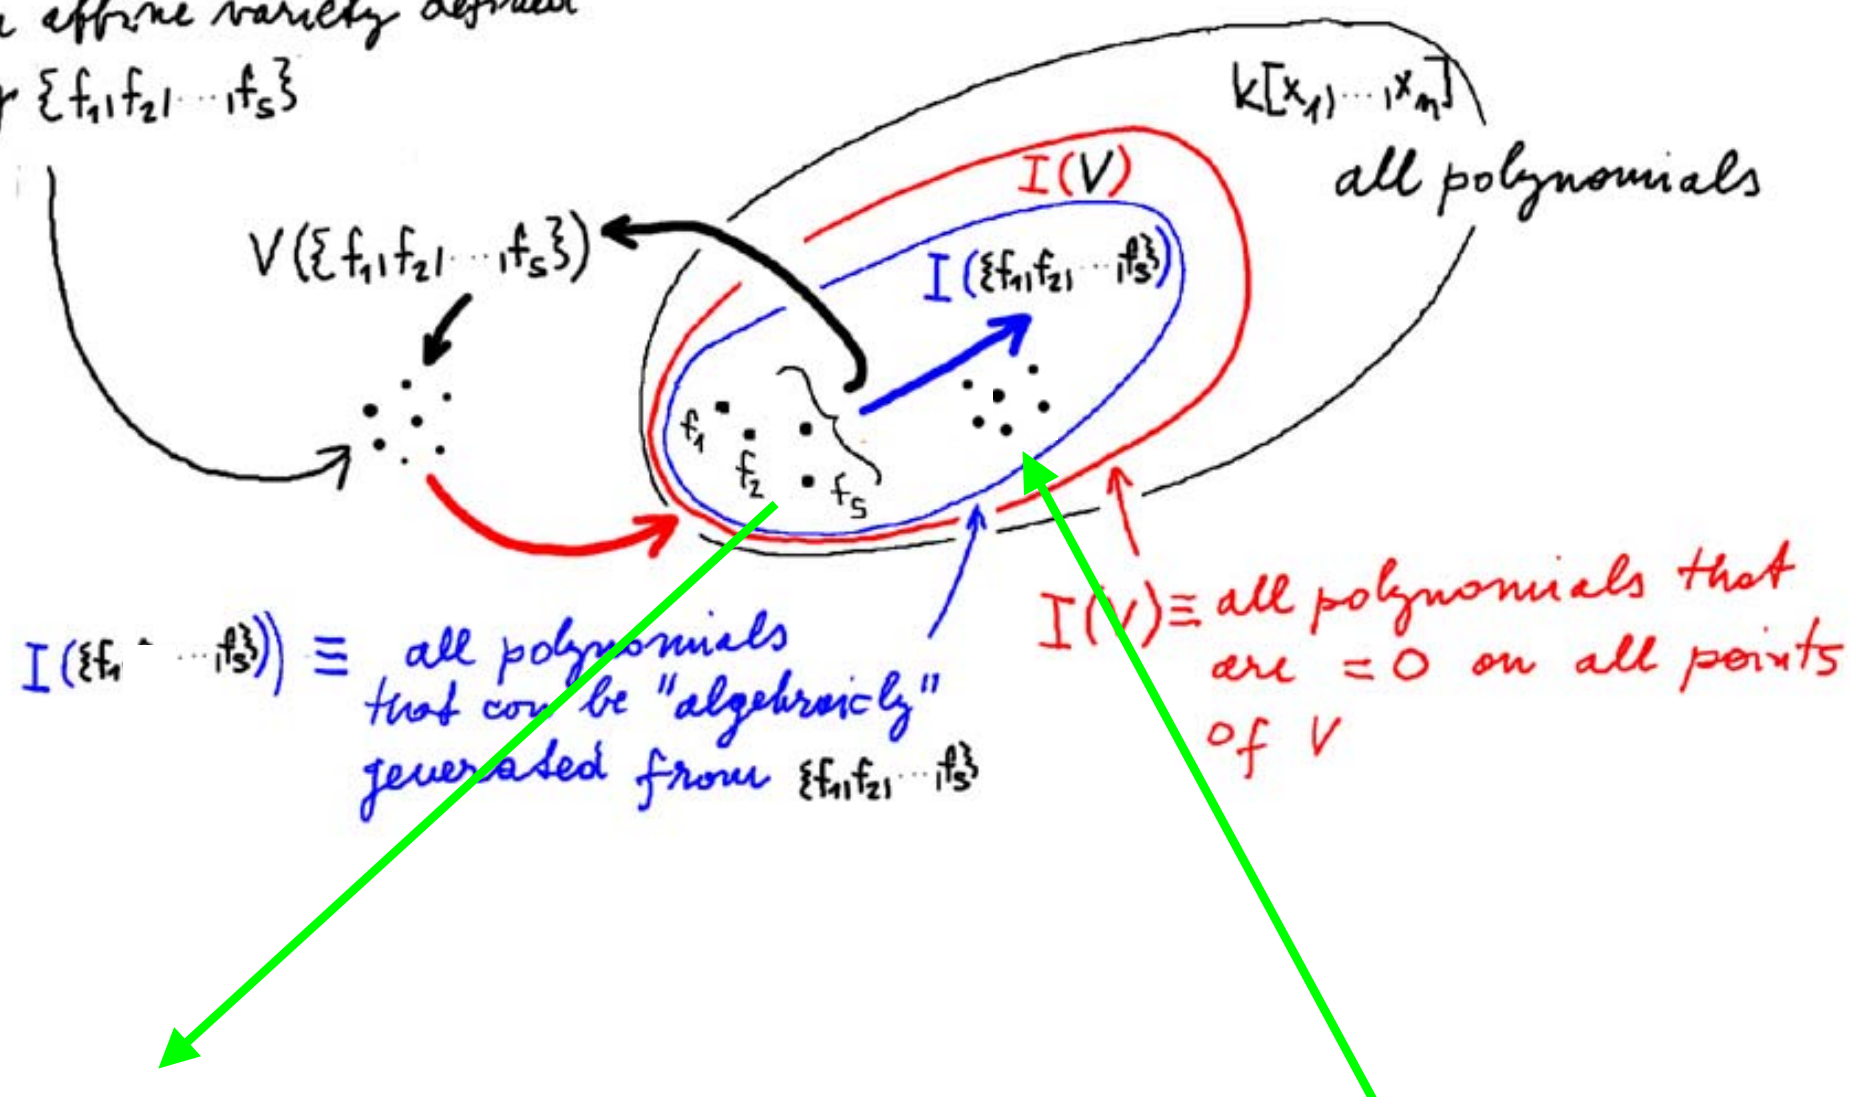 affine variety defined
{f₁,f₂,...,fₛ}
k[x₁,...,xₙ]
all polynomials
I(V)
V({f₁,f₂,...,fₛ})
I({f₁,f₂,...,fₛ})
f₁
f₂
fₛ
I({f₁ ...,fₛ})) ≡ all polynomials
that can be "algebraicly"
generated from {f₁,f₂,...,fₛ}
I(V) ≡ all polynomials that
are = 0 on all points
of V